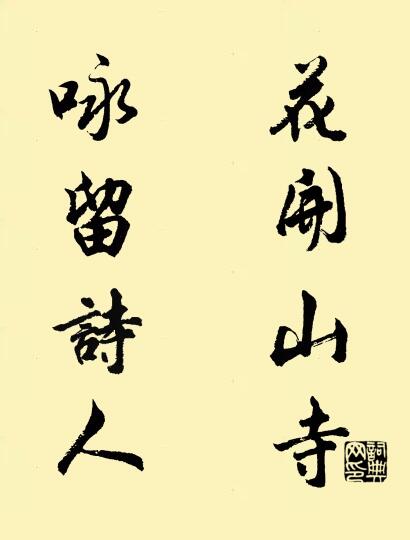 花開山寺
咏留詩人
詞典网印